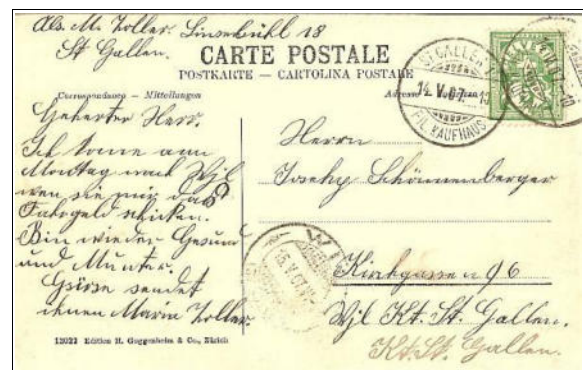 Abs. M. Zoller. Linsebühl 18
St Gallen.
CARTE POSTALE
POSTKARTE — CARTOLINA POSTALE
Correspondance — Mitteilungen
Adresse
ST GALLEN
14. V. 07.
FIL. KAUFHAUS
HELVETIA
Geherter Herr.
Ich kome am
Montag nach Wyl
wen sie mir das
Fahrgeld schicken.
Bin wieder Gesund
und Munter.
Grüsse sendet
ihnen Marie Zoller.
Herrn
Joseph Schönenberger
Kirchgasse 96
Wyl Kt. St. Gallen.
Kt. St. Gallen.
WIL
15. V. 07.
12022 Edition H. Guggenheim & Co., Zürich